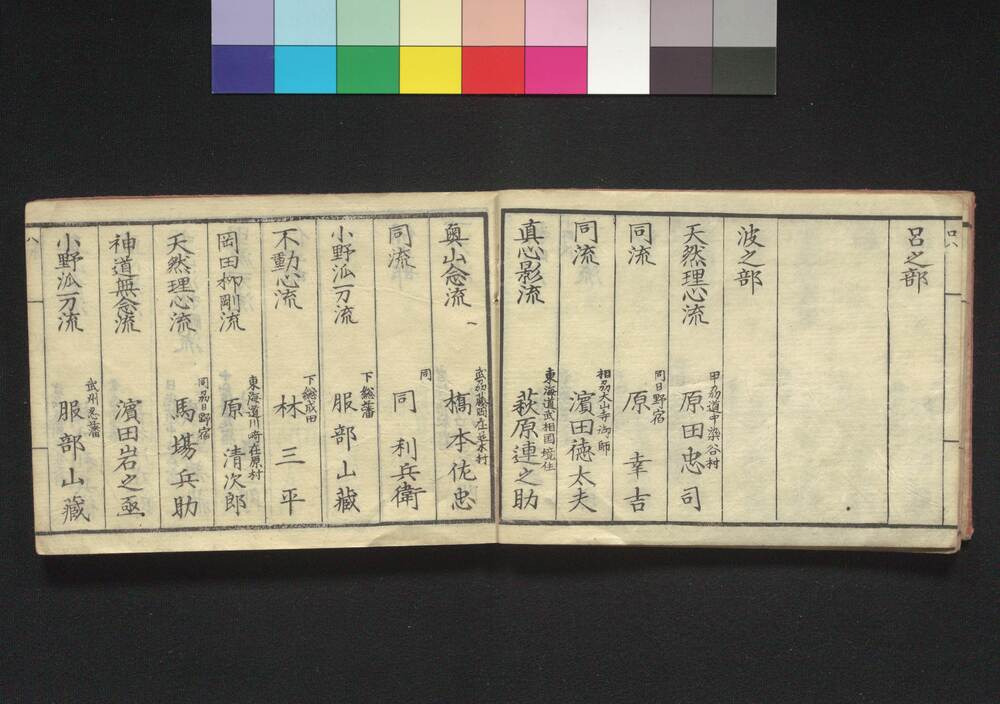 呂之部
波之部
天然理心流 甲刕道中染谷村 原田忠司
同流 同日野宿 原幸吉
同流 相刕大山寺御師 濱田徳太夫
真心影流 東海道武相国境住 萩原連之助
奥山念流 武刕藤岡在並木村 橋本佐忠
同流 同 同利兵衛
小野派一刀流 下総藩 服部山藏
不動心流 下総成田 林三平
岡田柳剛流 東海道川崎在原村 原清次郎
天然理心流 同刕日野宿 馬場兵助
神道無念流 濱田岩之亟
小野派一刀流 武州忍藩 服部山藏
八